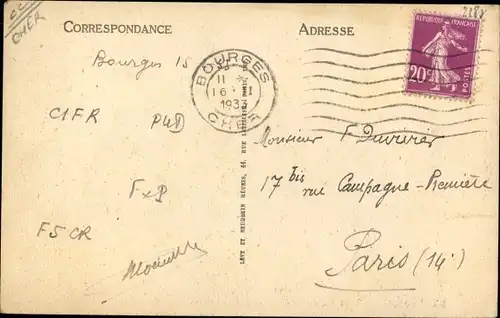 CC
CHER
CORRESPONDANCE
ADRESSE
2188
REPUBLIQUE FRANÇAISE
20c
POSTES
BOURGES
11
16
1933
CHER
Bourges 15
C1FR
P4D
FxP
F5CR
LÉVY ET NEURDEIN RÉUNIS, 44, RUE LETELLIER, PARIS
Monsieur F Duvivier
17 bis rue Campagne-Première
Paris (14e)